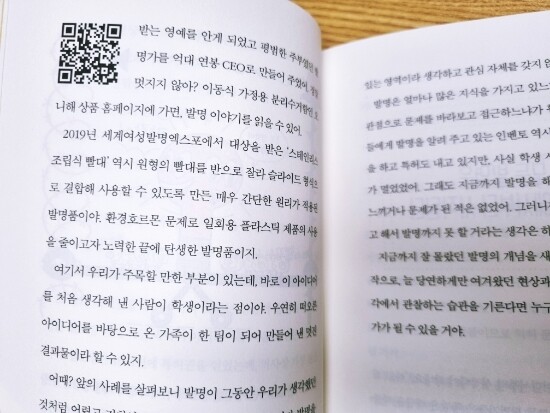 받는 영예를 안게 되었고 평범한 주부였던 발
명가를 억대 연봉 CEO로 만들어 주었어. 정말
멋지지 않아? 이동식 가정용 분리수거함인
니해 상품 홈페이지에 가면, 발명 이야기를 읽을 수 있어.
2019년 세계여성발명엑스포에서 대상을 받은 '스테인리스
조립식 빨대' 역시 원형의 빨대를 반으로 잘라 슬라이드 형식으
로 결합해 사용할 수 있도록 만든 매우 간단한 원리가 적용된
발명품이야. 환경호르몬 문제로 일회용 플라스틱 제품의 사용
을 줄이고자 노력한 끝에 탄생한 발명품이지.
여기서 우리가 주목할 만한 부분이 있는데, 바로 이 아이디어
를 처음 생각해 낸 사람이 학생이라는 점이야. 우연히 떠오른
아이디어를 바탕으로 온 가족이 한 팀이 되어 만들어 낸 멋진
결과물이라 할 수 있지.
어때? 앞의 사례를 살펴보니 발명이 그동안 우리가 생각했던
것처럼 어렵고
있는 영역이라 생각하고 관심 자체를 갖지 않
발명은 얼마나 많은 지식을 가지고 있느
관점으로 문제를 바라보고 접근하느냐가
들에게 발명을 알려 주고 있는 인벤토 역시
을 하고 특허도 내고 있지만, 사실 학생 시
가 멀었었어. 그래도 지금까지 발명을 하
느끼거나 문제가 된 적은 없었어. 그러니
고 해서 발명까지 못 할 거라는 생각은 하
지금까지 잘 몰랐던 발명의 개념을 새
작으로, 늘 당연하게만 여겨왔던 현상과
각에서 관찰하는 습관을 기른다면 누구
가가 될 수 있을 거야.